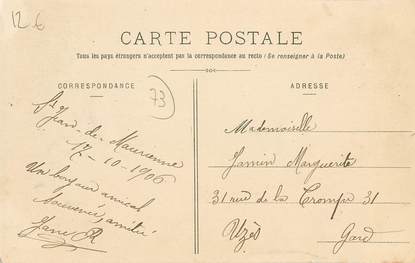 12.6
CARTE POSTALE
Tous les pays étrangers n'acceptent pas la correspondance au recto (Se renseigner à la Poste)
CORRESPONDANCE
73
St
Jean-de-Maurienne
17-10-1906
Un bonjour amical
Souvenir, amitié
Jane R
ADRESSE
Mademoiselle
Jamin Marguerite
31 rue de la Trompe 31
Uzès
Gard